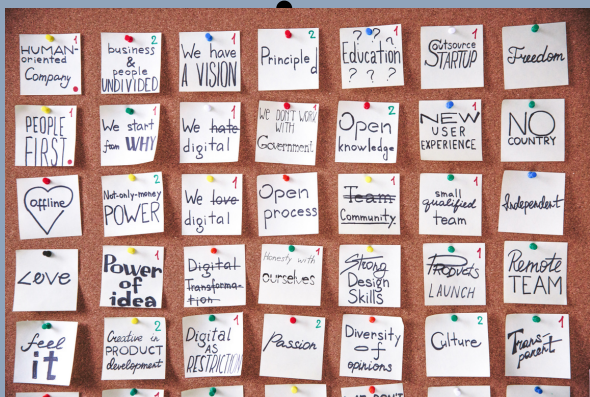 HUMAN-
oriented
Company.
1
business
&
people
UNDIVIDED
2
We have
A VISION
1
Principled
2
? ? ?
Education
? ? ?
1
Outsource
STARTUP
1
Freedom
PEOPLE
FIRST.
1
We start
from WHY
1
We hate
digital
1
WE DON'T WORK
WITH
Government
1
Open
knowledge
2
NEW
USER
EXPERIENCE
1
NO
COUNTRY
1
Offline
Not-only-money
POWER
2
We love
digital
1
Open
process
1
Team
Community.
1
small
qualified
team
1
Independent
Love
Power
of
idea
1
Digital
Transforma-
tion
1
Honesty with
ourselves
1
Strong
Design
Skills
Products
LAUNCH
1
Remote
TEAM
feel
it
Creative in
PRODUCT
development
2
Digital
AS
RESTRICTION
1
Passion
2
Diversity
of
opinions
1
Culture
2
Trans-
parent
1